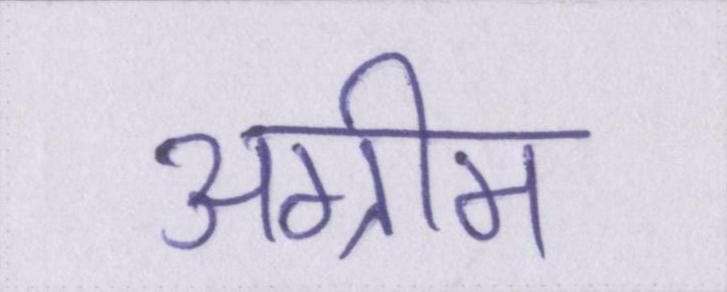 अग्रीम